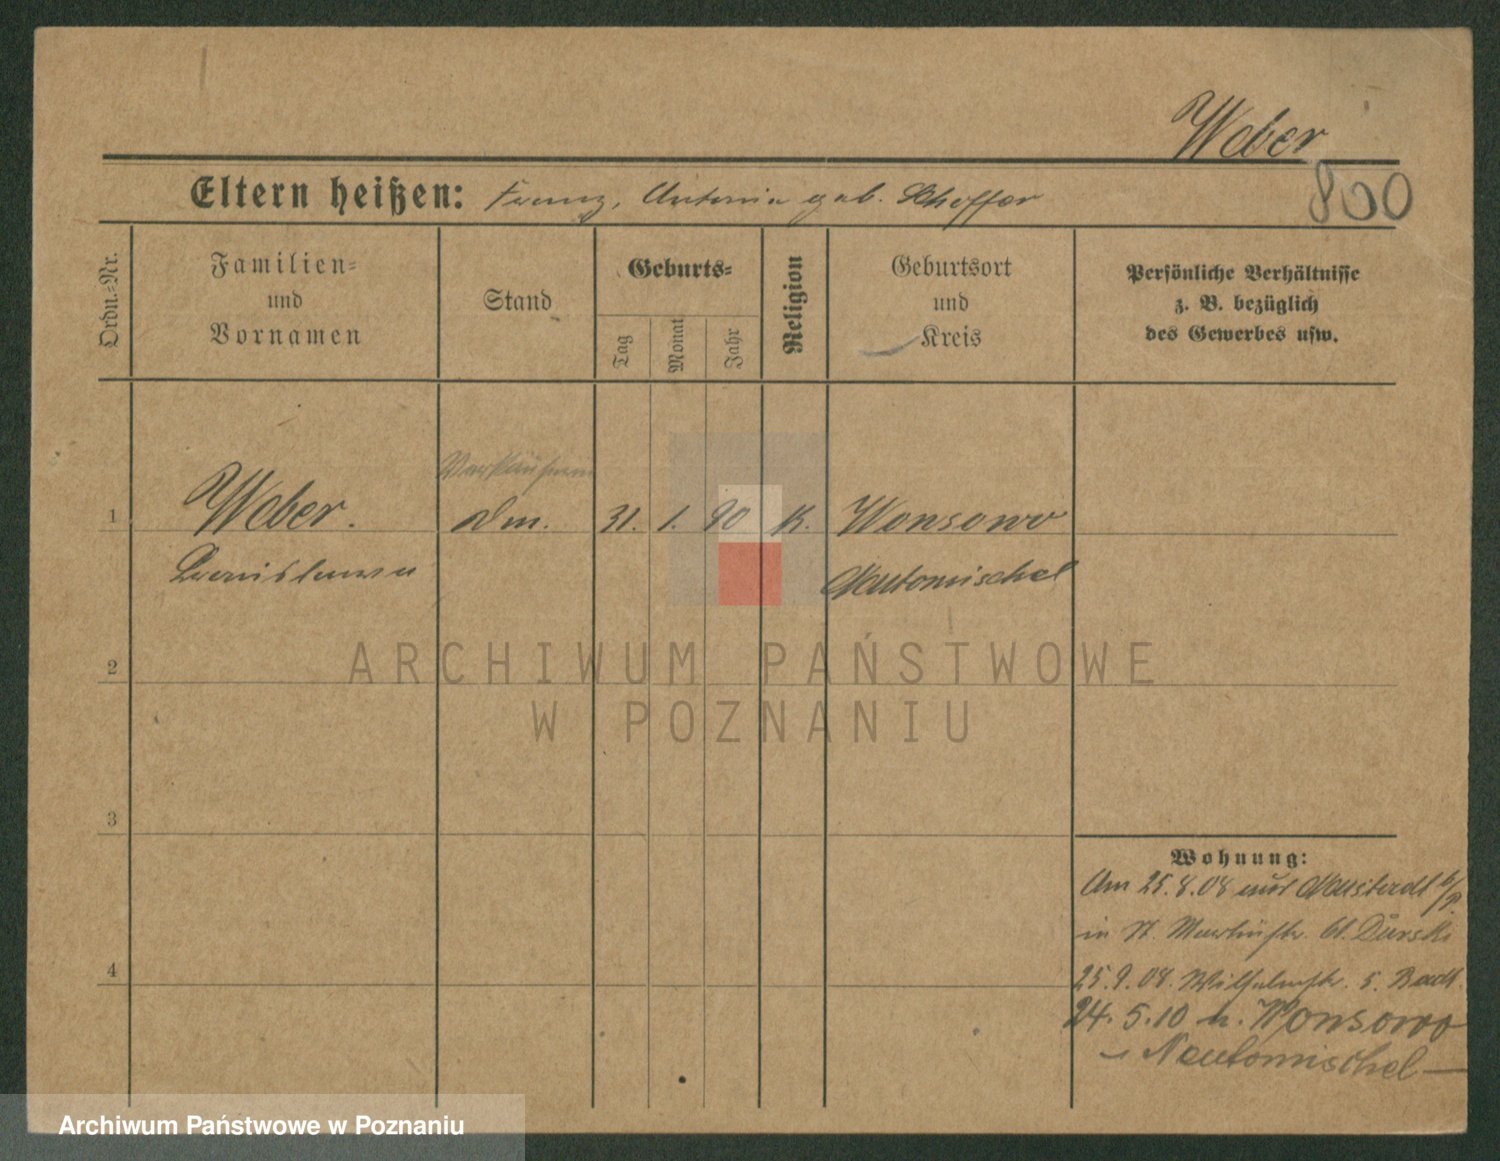 Weber
Eltern heißen: Franz, Antonie geb. Scheffer
800
Ordn.-Nr.
Familien-
und
Vornamen
Stand
Geburts-
Tag
Monat
Jahr
Religion
Geburtsort
und
Kreis
Persönliche Verhältnisse
z. B. bezüglich
des Gewerbes usw.
Verkäuferin
1 Weber. Dm. 31. 1. 90 K. Wonsowo
Bronislawa Neutomischel
ARCHIWUM PAŃSTWOWE
W POZNANIU
2
3
4
Wohnung:
Am 25.8.08 aus Neustadt b/P.
in St. Martinstr. 61. Durski
25.9.08. Wilhelmstr. 5. Badt.
24.5.10 n. Wonsowo
Neutomischel
Archiwum Państwowe w Poznaniu